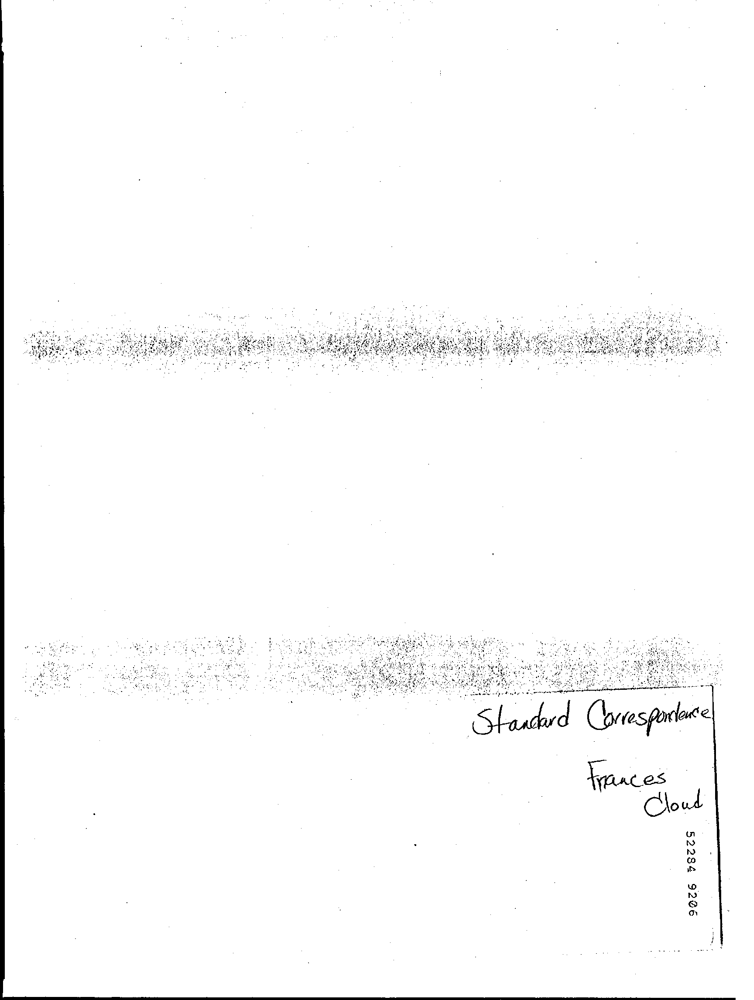 Standard Correspondence
Frances
Cloud
52284 9206